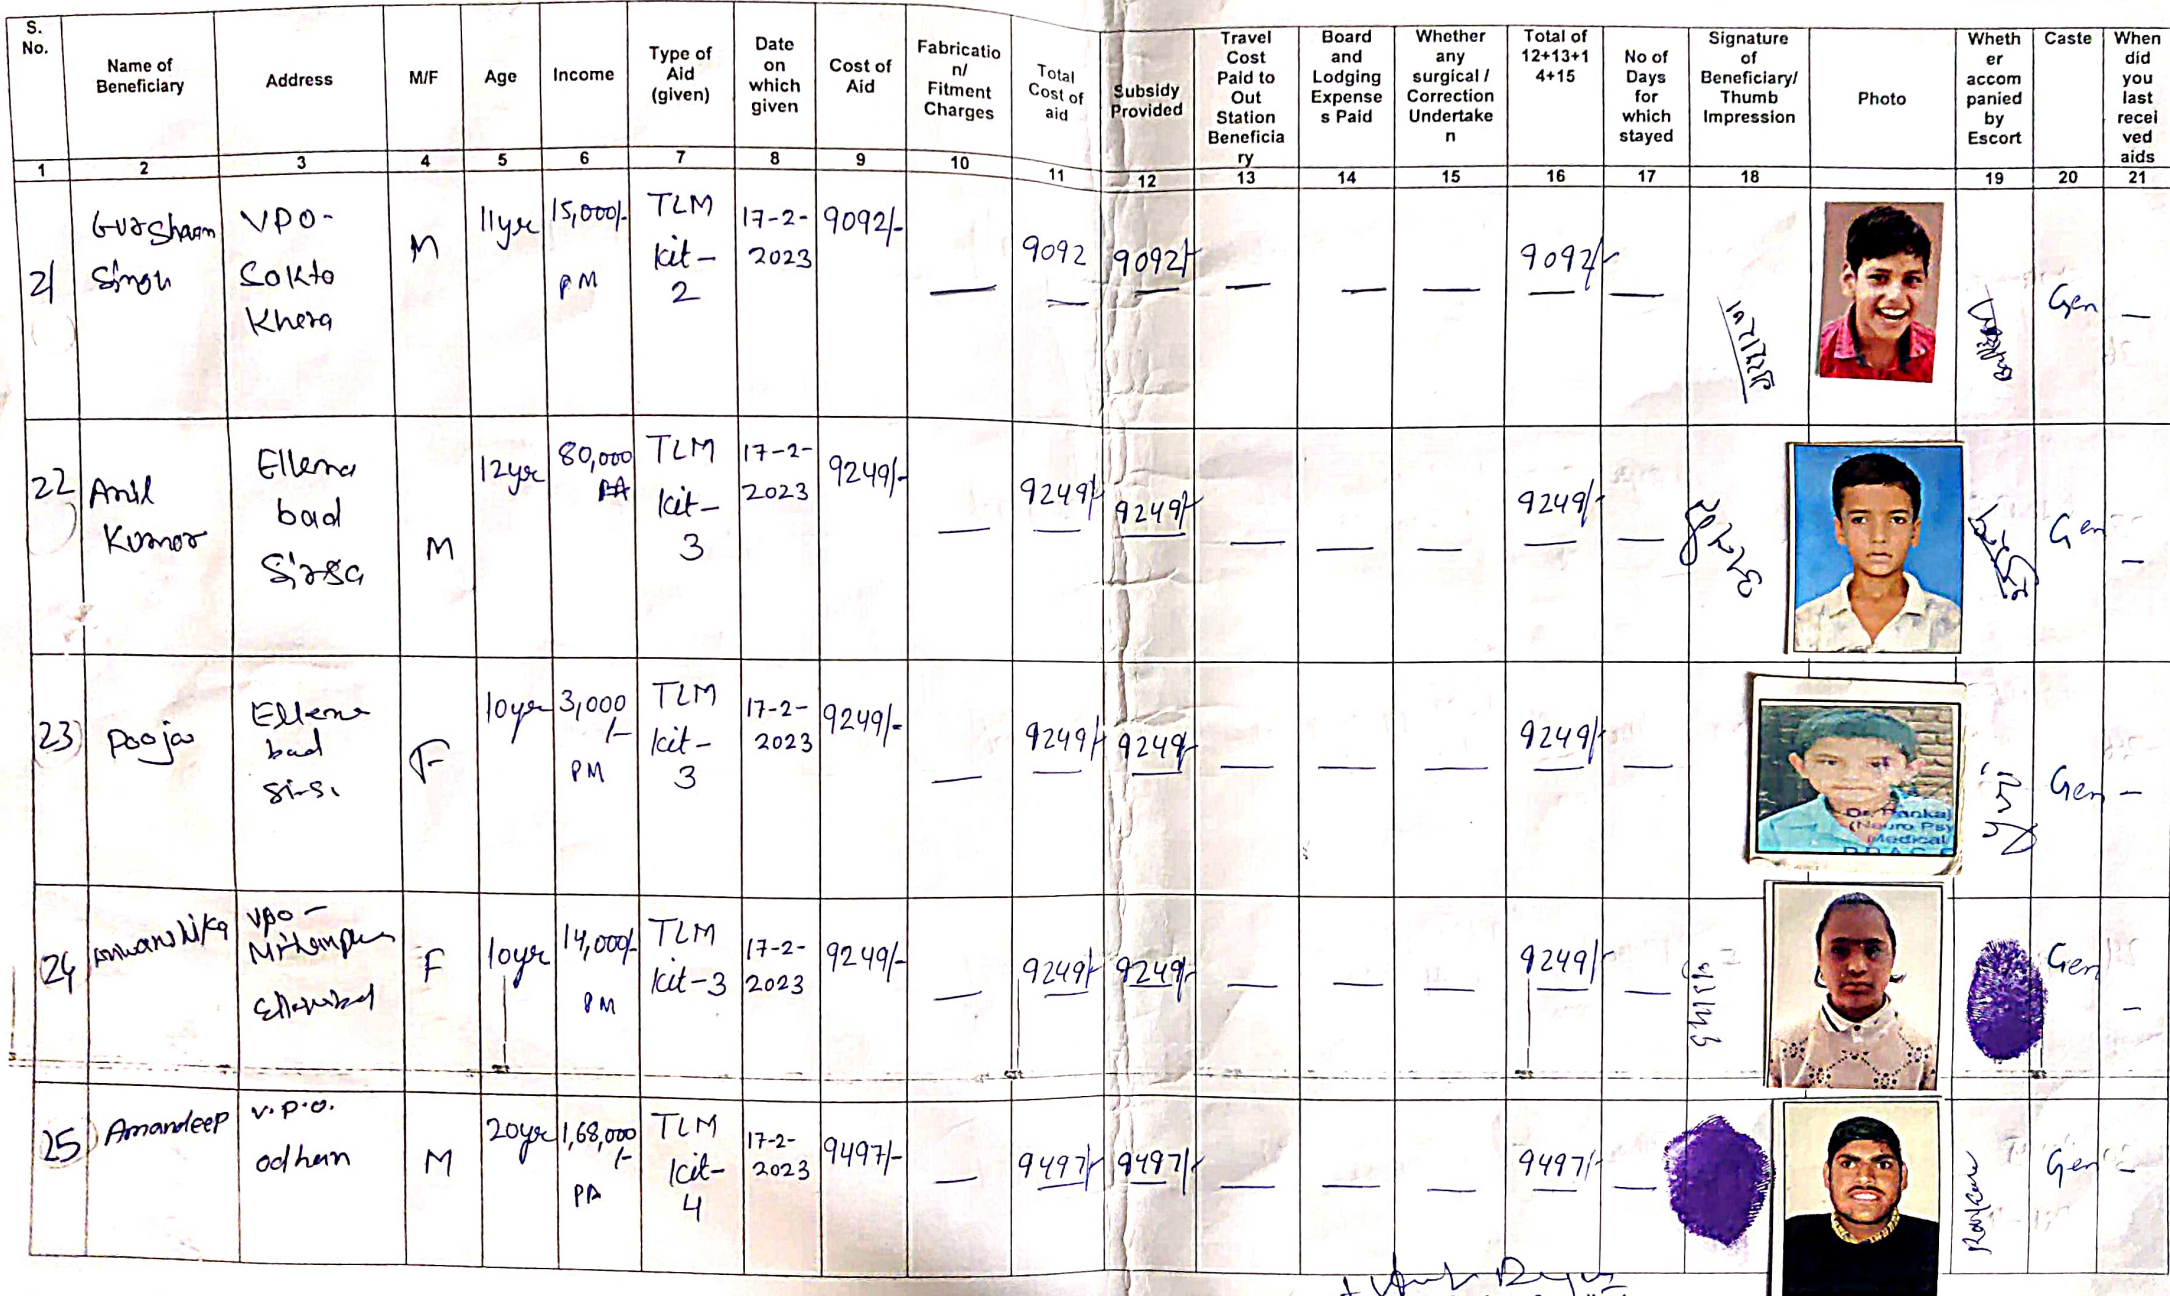 S. No.
Name of Beneficiary
Address
M/F
Age
Income
Type of Aid (given)
Date on which given
Cost of Aid
Fabricatio n/ Fitment Charges
Total Cost of aid
Subsidy Provided
Travel Cost Paid to Out Station Beneficia ry
Board and Lodging Expense s Paid
Whether any surgical / Correction Undertake n
Total of 12+13+1 4+15
No of Days for which stayed
Signature of Beneficiary/ Thumb Impression
Photo
Wheth er accom panied by Escort
Caste
When did you last recei ved aids
1 2 3 4 5 6 7 8 9 10 11 12 13 14 15 16 17 18 19 20 21
21 Gursharn Singh
VPO- Sokto Khera
M 11yr 15,000/- PM
TLM Kit- 2
17-2- 2023
9092/- — 9092 — 9092/- — — — — 9092/- — —
Gen —
22 Anil Kumar
Ellena bad Sirsa
M 12yr 80,000 PA
TLM Kit- 3
17-2- 2023
9249/- — 9249/- — 9249/- — — — — 9249/- — —
Gen —
23 Pooja
Ellena bad
F 10yr 3,000 /- PM
TLM Kit- 3
17-2- 2023
9249/- — 9249/- — 9249/- — — — — 9249/- — —
Dr. Pankaj
(Neuro Psy
Medical
Gen —
24
VPO -
F 10yr 14,000/- PM
TLM Kit-3
17-2- 2023
9249/- — 9249/- — 9249/- — — — — 9249/- — —
Gen —
25 Amandeep
V.P.O. odhan
M 20yr 1,68,000 /- PA
TLM Kit- 4
17-2- 2023
9497/- — 9497/- — 9497/- — — — — 9497/- — —
Gen —